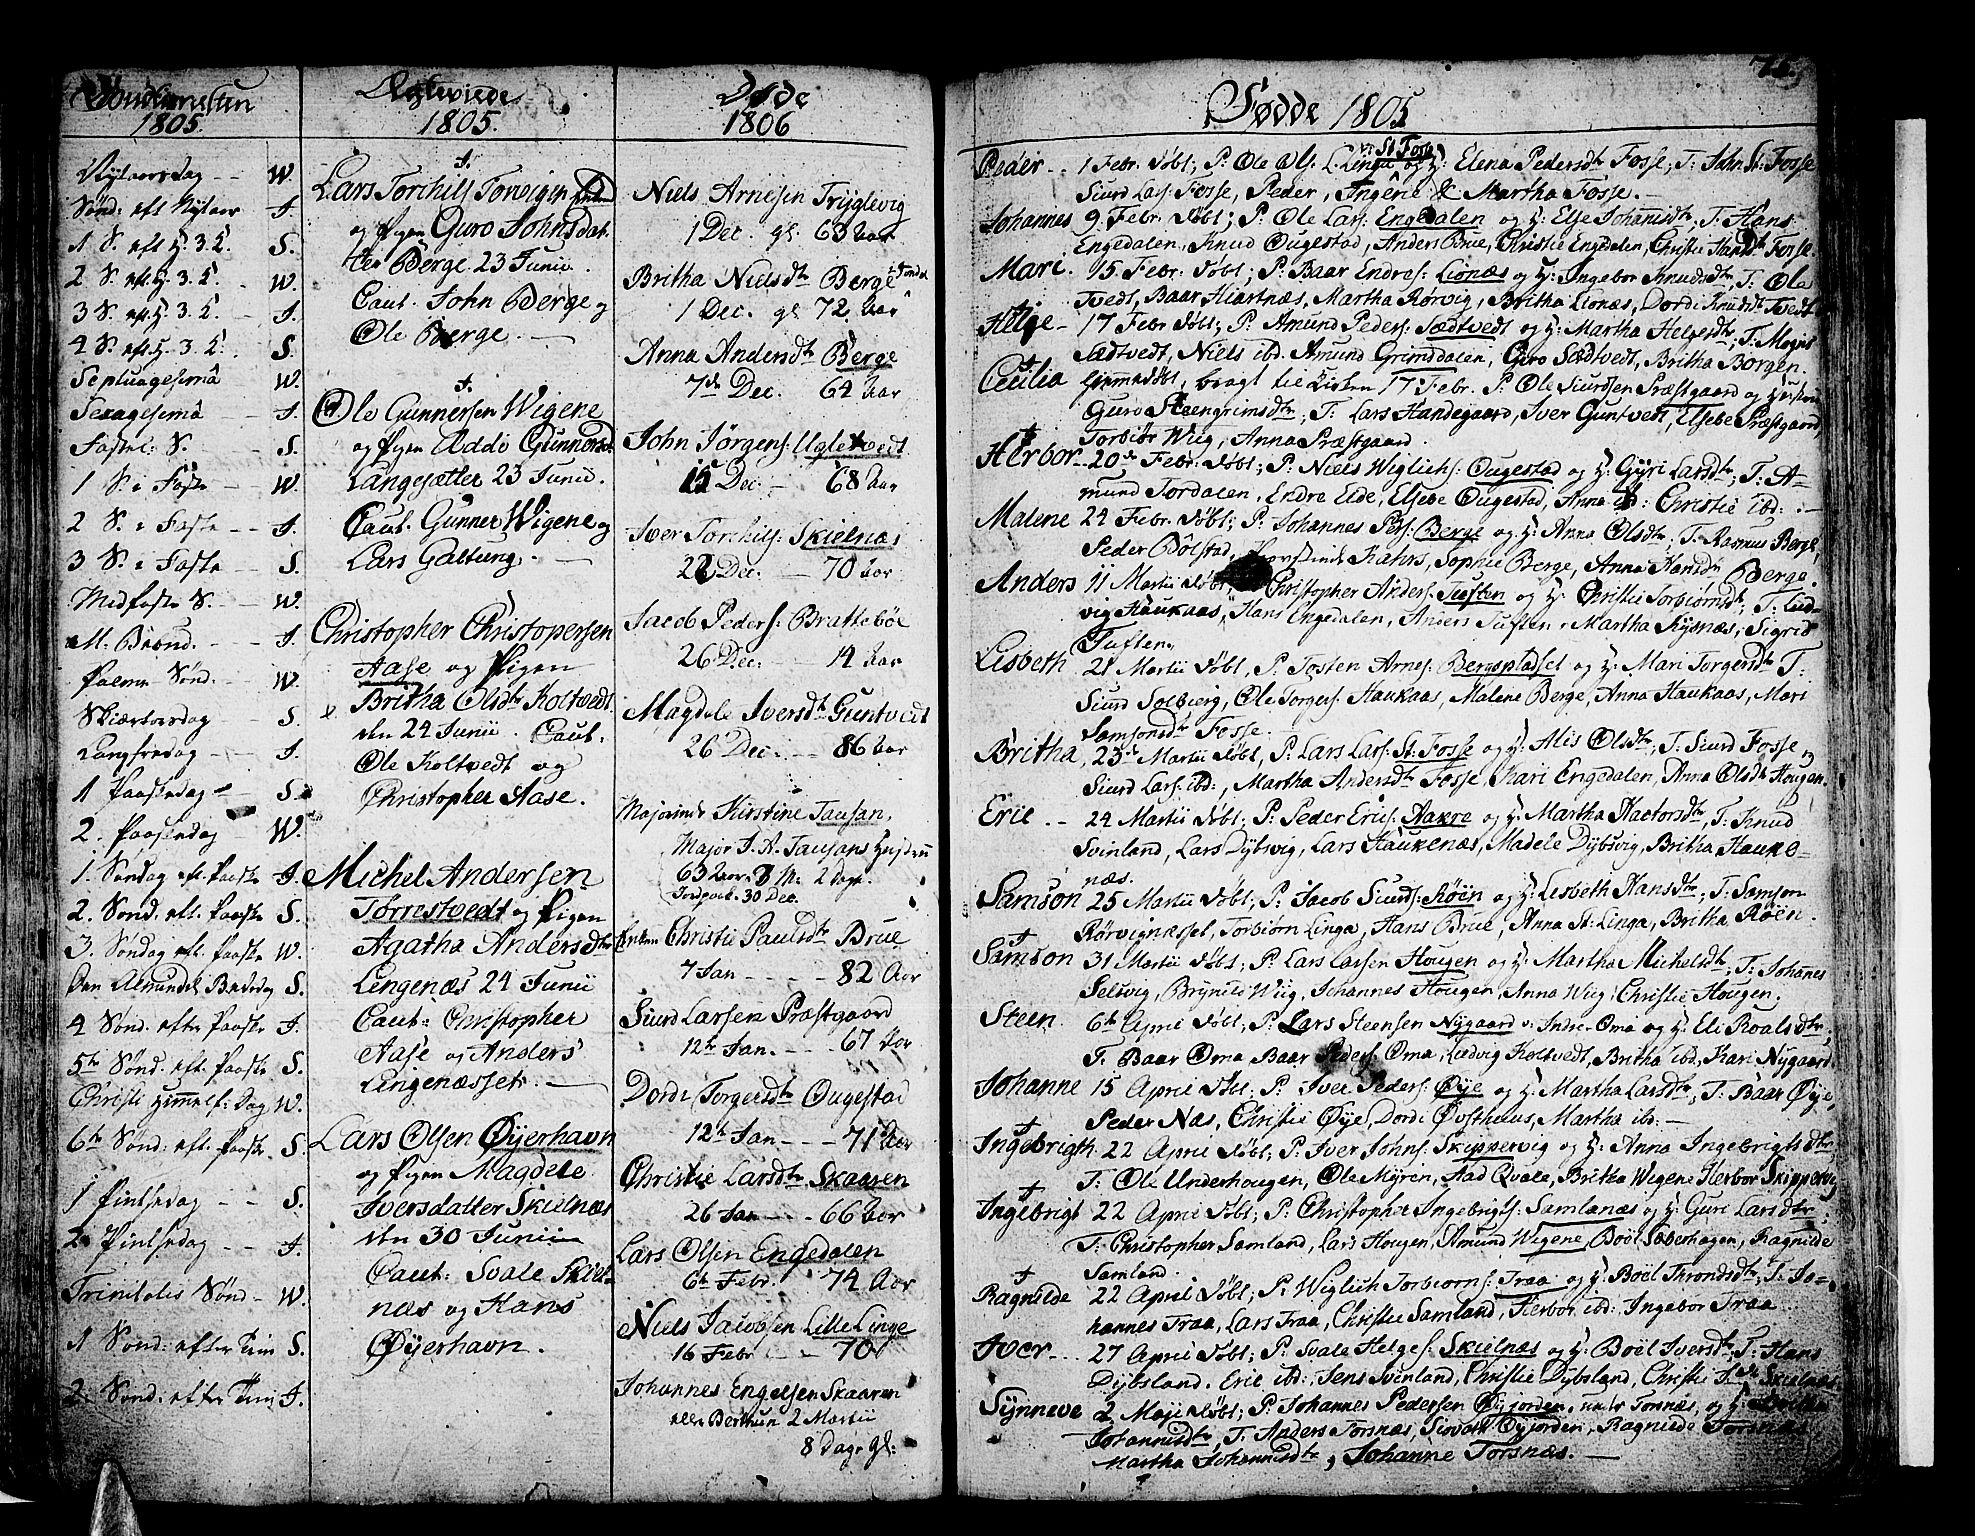 1805.
Nytaarsdag -- W.
Sønd: eft Nytaar J.
1 S. eft H. 3. K. S.
2 S. eft H. 3. K. W.
3 S. eft H. 3. K. J.
4 S. eft H. 3. K. S.
Septuagesima W.
Sexagesima -- J.
Fastel: S. S.
1 S. i Faste -- W.
2 S. i Faste -- J.
3 S. i Faste -- S.
Midfaste S. -- W.
M. Bebud. -- J.
Palme Sønd. -- W.
Skiærtorsdag -- S.
Langfredag -- J.
1 Paaskedag -- S.
2. Paaskedag -- W.
1. Søndag eft. Paaske J.
2. Sønd. eft. Paaske S.
3. Søndag eft. Paaske W.
Den Almindel. Bededag S.
4 Sønd. efter Paaske J.
5te Sønd. eft. Paaske S.
Christi Himmelf: Dag W.
6te Sønd. eft. Paaske. S.
1 Pintsedag -- S.
2 Pintsedag -- J.
Trinitatis Sønd -- W.
1 Sønd: efter Trin S.
2. Sønd: efter Trin J.
Ægteviede
1805.
Lars Torchils Torvigen
og Pigen Guro Johnsdat
ter Berge. 23 Junii.
Caut. John Berge og
Ole Berge. —
Ole Gunnersen Wigene
og Pigen Addi Gunnersd
Langesætter 23 Junii.
Caut. Gunner Wigene og
Lars Galtung. —
Christopher Christopersen
Aase og Pigen
Britha Olsdtr Koltvedt
den 24 Junii. Caut.
Ole Koltvedt og
Christopher Aase.
Michel Andersen
Torrestvedt og Pigen
Agatha Andersdtr
Lingenæs 24 Junii
Caut: Christopher
Aase og Anders
Lingenæsset. —
Lars Olsen Øyerhavn
og Pigen Magdele
Iversdatter Skielnæs
den 30 Junii
Caut: Svale Skiel-
næs og Hans
Øyerhavn.
Døde
1806
Niels Arnesen Tryglevig
1 Dec. gl. 63 Aar
Britha Nielsdtr Berge
1 Dec. gl 72 Aar
Anna Andersdtr Berge
7de Dec. 64 Aar
John Jörgens: Ugletvedt
15 Dec. — 68 Aar
Iver Torchils: Skielnæs
22 Dec. — 70 Aar
Jacob Peders: Bratteböe
26 Dec. -- 14 Aar
Magdele Iversdtr Guntvedt
26 Dec. 86 Aar
Majorinde Kirstine Tausan,
Major J. A. Tausans Hustru
63 Aar 8 M: 2 Dage.
30 Dec.
Enken Christie Paulsdtr Brue
7 Jan --- 82 Aar
Siurd Larsen Præstgaard
12te Jan. --- 67 Aar
Dordi Torgersdtr Ougestad
12te Jan --- 71 Aar
Christie Larsdtr Skaaren
26 Jan --- 66 Aar
Lars Olsen Engedalen
6te Febr. -- 74 Aar
Niels Jacobsen Lille Linge
16 Febr -- 70
Johannes Engelsen Skaaren
2 Martii
8 Dage gl:
75.
Fødde 1805
Peder -- 1 Febr. döbt; P: Ole Ols. L. Linge v: St Fosse og H: Elena Pedersdtr Fosse, T: John St: Fosse
Siurd Lars: Fosse, Peder, Ingerie & Martha Fosse. —
Johannes 9 Febr. döbt; P: Ole Lars: Engedalen og H: Else Johannisdtr, T: Hans
Engedalen, Knud Ougestad, Anders Brue, Christie Engdalen, Christie Hansdtr Fosse.
Mari. 15 Febr. döbt; P: Baar Endres: Lionæs og H: Ingebor Knudsdtr, T: Ola
Tvedt, Baar Hiartnæs, Martha Rörvig, Britha Lionæs, Dordi Knudsdtr Tvedt
Helge -- 17 Febr döbt; P: Amund Peders: Sædtvedt og H: Martha Helgesdtr; T: Mogns
Sædtvedt, Niels ibd. Amund Grimddalen, Guro Sædtvedt, Britha Borgen.
Cecilia hjemmedöbt, bragt til Kirken 17 Febr. P: Ole Siurdsen Præstgaard og Hustrue
Guro Steengrimsdtr, T: Lars Handegaard, Iver Guntvedt, Elsebe Præstgaard,
Torbiör Wiig, Anna Præstgaard.
Herbor -- 20de Febr. döbt; P: Niels Wiglichs: Ougestad og H: Gyri Larsdtr; T: A-
mund Tordalen, Endre Elde, Elsebe Ougestad, Anna ibd: Christie ibd: —
Malene 24 Febr. döbt; P: Johannes Pers: Berge og H: Anna Olsdtr, T: Rasmus Berge,
Peder Bölstad, Rahrs, Sophie Berge, Anna Hansdtr Berge.
Anders 11 Martii döbt; Christopher Anders: Tuften og H: Christie Torbiörnsdtr; T: Lud-
vig Haukaas, Hans Engedalen, Anders Tuften, Martha Rysnæs, Sigrid
Tuften.
Lisbeth 21 Martii döbt, P: Tosten Arnes: Bergspladset og H: Mari Torgersdtr T:
Siurd Solbierg, Ole Torgers: Haukaas, Malene Berge, Anna Haukaas, Mari
Samsonsdtr Fosse.
Britha, 23de Martii döbt, P: Lars Lars: St: Fosse og H: Alis Olsdtr, T: Siurd Fosse,
Siurd Lars: ibd:, Martha Andersdtr Fosse, Kari Engedalen, Anna Olsdtr Hougen.
Eric -- 24 Martii döbt; P: Peder Erics: Aakre og H: Martha Hactorsdtr, T: Knud
Svinland, Lars Dybsvig, Lars Haukenæs, Madele Dybsvig, Britha Hauke-
næs.
Samson 25 Martii döbt; P: Jacob Siurds: Röen og H: Lisbeth Hansdtr; T: Samson
Rörvignæsset, Torbiörn Linga, Hans Brue, Anna St: Linga, Britha Röen.
Samson 31 Martii döbt; P: Lars Larsen Hougen og H: Martha Michelsdtr; T: Johannes
Selsvig, Brynild Wiig, Johannes Hougen, Anna Wiig, Christie Hougen.
Steen. 6te April döbt, P: Lars Steensen Nygaard v: Indre Oma og H: Eli Roalsdtr,
T: Baar Oma Baar Peders: Oma, Ludvig Koltvedt, Britha ibd. Kari Nygaard.
Johanne 15 April döbt; P: Iver Peders: Øye og H: Martha Larsdtr; T: Baar Øye,
Peder Næs, Christie Øye, Dordi Øvsthuus, Martha ibd: —
Ingebrigth 22 April döbt; P: Iver Johns: Skippervig og H: Anna Ingebrigtsdtr
T: Ole Underhougen, Ole Myren, Aad Qvale, Britha Wigene Herbor Skippervig
Ingebrigt 22 April döbt; P: Christopher Ingebrigts: Samlanæs og H: Guri Larsdtr;
T: Christopher Samland, Lars Hougen, Amund Wigene, Boël Sæberhagen, Ragnilde
Samland.
Ragnilde 22 April döbt; P: Wiglich Torbiörns: Traa og H: Boël Throndsdtr; T: Jo-
hannes Traa, Lars Traa, Christie Samland, Herbor ibd: Ingebor Traa
Iver -- 27 April döbt; P: Svale Helges: Skielnæs og H: Boël Iversdtr; T: Hans
Dybsland. Eric ibd: Jens Svinland, Christie Dybsland, Christie Skielnæs.
Synneve 2 Maji döbt; P: Johannes Pedersen Øyjorden, under Torsnæs, og H: Britha
Johannisdtr, T: Anders Torsnæs, Siovat Øyjorden, Ragnilde Torsnæs
Martha Johannisdtr, Johanne Torsnæs. —